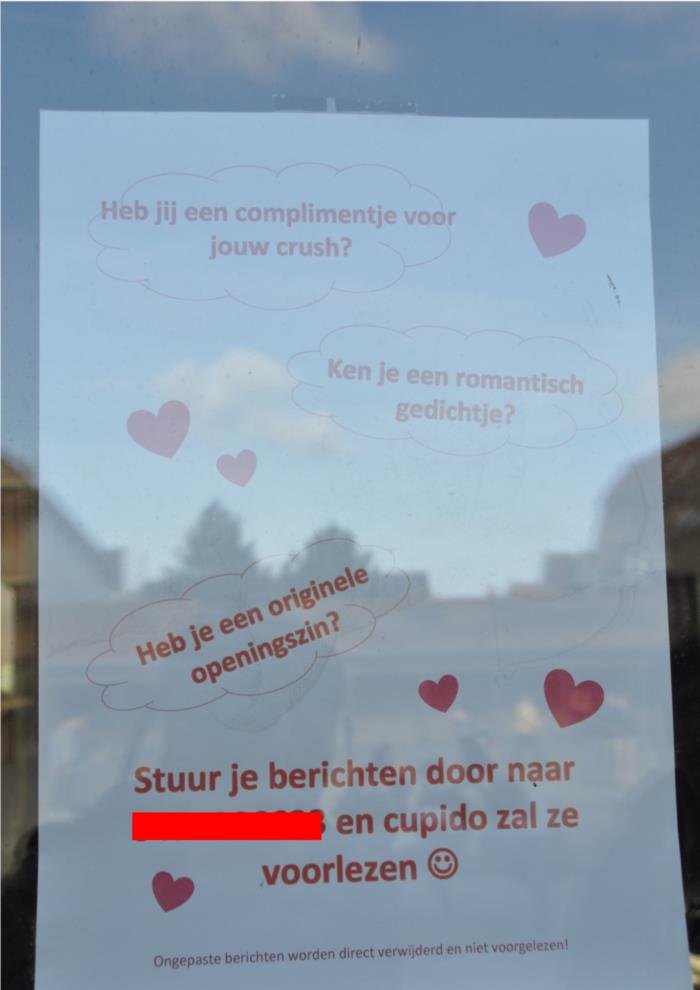 Heb jij een complimentje voor
jouw crush?
Ken je een romantisch
gedichtje?
Heb je een originele
openingszin?
Stuur je berichten door naar
en cupido zal ze
voorlezen
Ongepaste berichten worden direct verwijderd en niet voorgelezen!